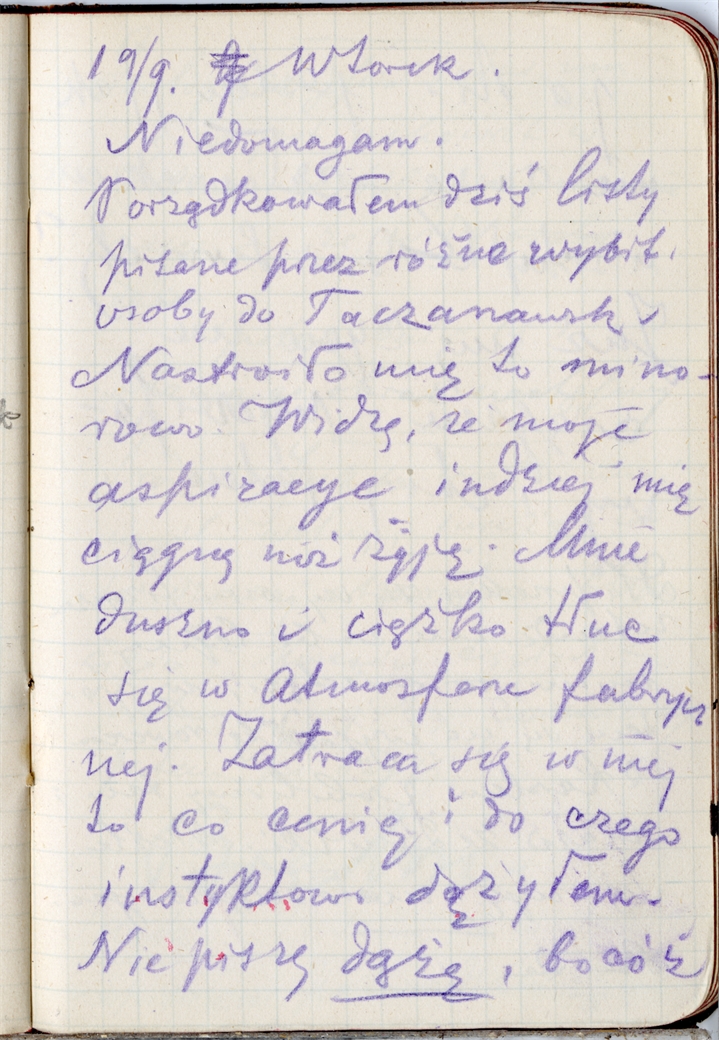 19/9. Wtorek.
Niedomagam.
Porządkowałem dziś listy
pisane przez różne wybit.
osoby do Taczanowsk
Nastroiło mię to mino-
rowo. Widzę, że moje
aspiracye indziej mię
ciągną niż żyję. Mnie
duszno i ciężko tłuc
się w atmosferze fabrycz
nej. Zatraca się w niej
to co cenię i do czego
instyktowo dążyłem.
Nie piszę dążę, bo cóż